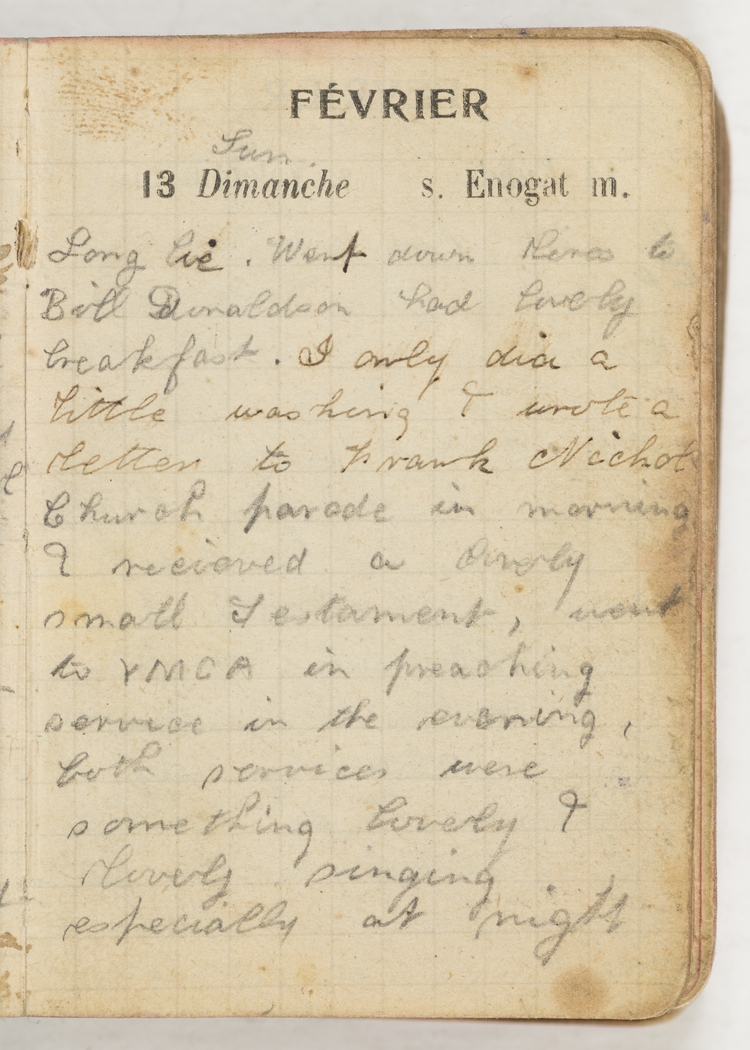 FÉVRIER
Sun.
13 Dimanche s. Enogat m.
Long lie. Went down to
Bill Donaldson had lovely
breakfast. I only did a
little washing & wrote a
letter to Frank Nichol
Church parade in morning
I recieved a lovely
small Testament, went
to YMCA in preaching
service in the evening,
both services were
something lovely &
lovely singing
especially at night